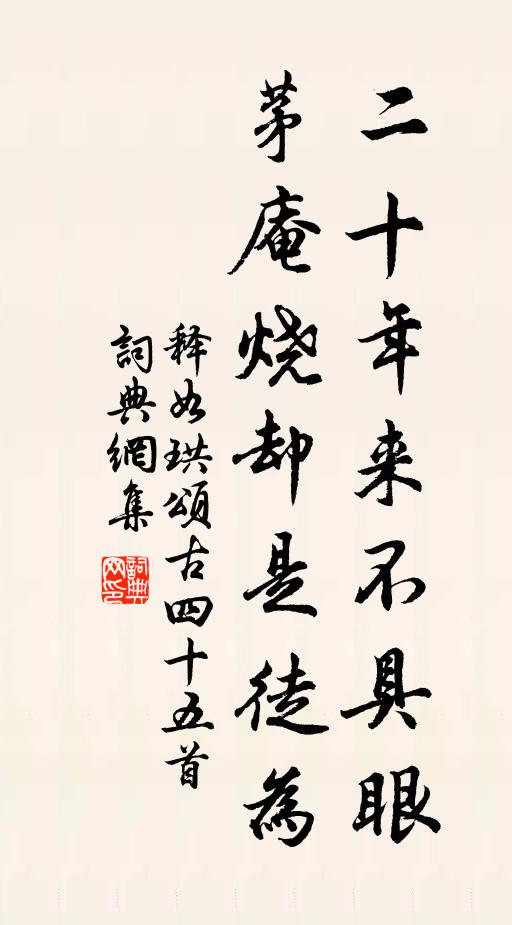 二十年来不具眼
茅庵烧却是徒為
释如珙頌古四十五首
詞典網集
詞典网印